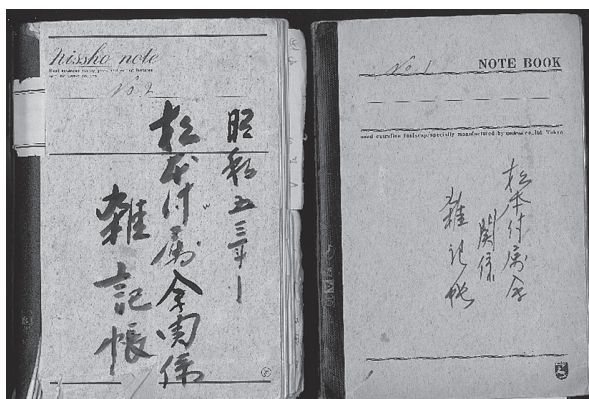 Nissho note
No. 2
昭和五三年ー
松本付属会関係
雑記帳
No. 1
NOTE BOOK
松本付属会
関係
雑記帳